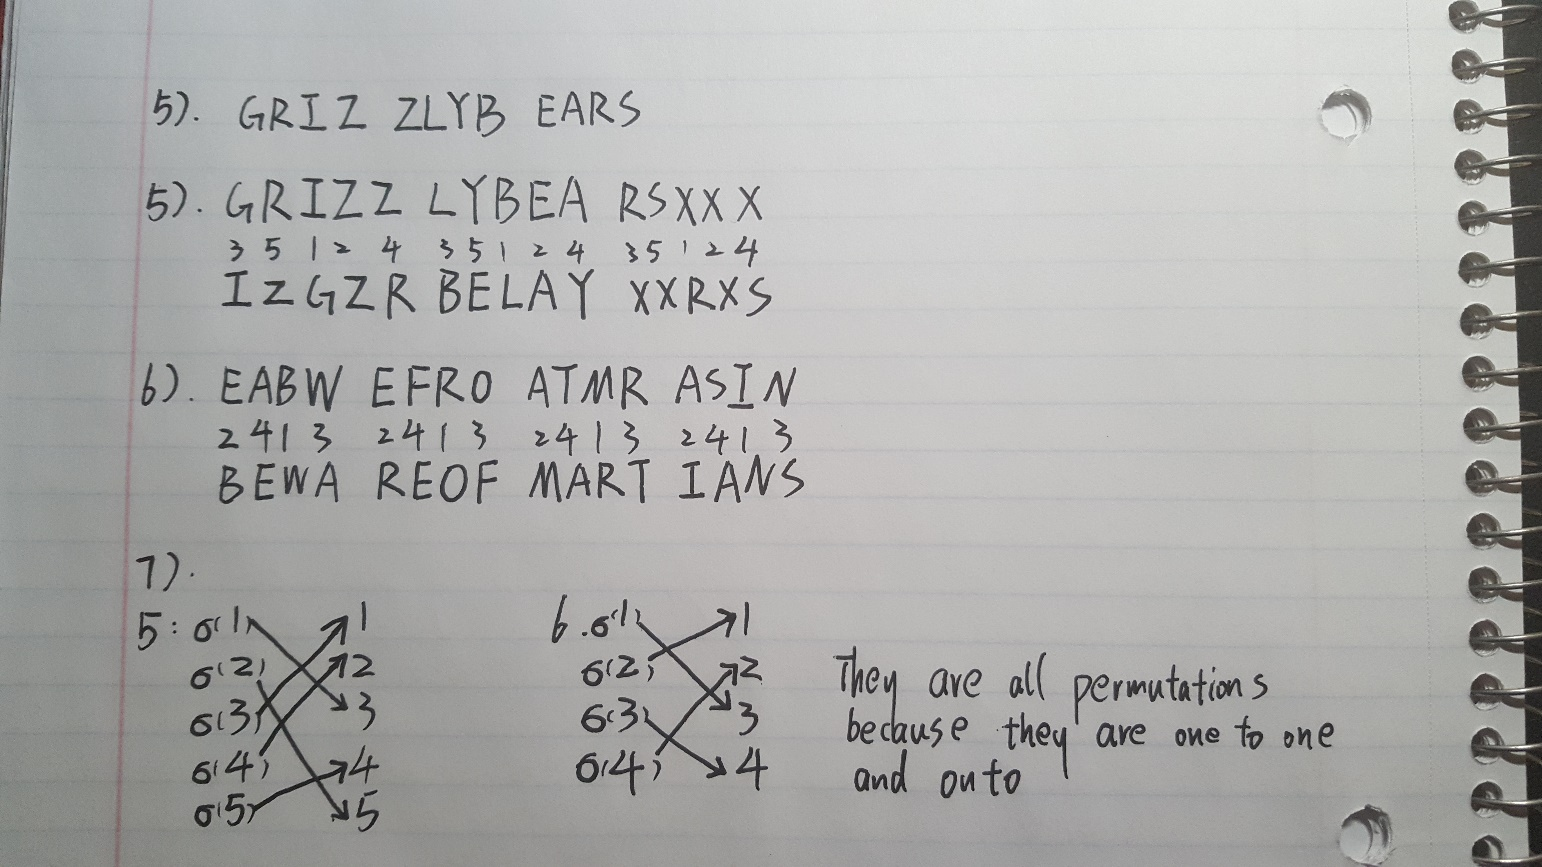 5). GRIZ ZLYB EARS
5). GRIZZ LYBEA RSXXX
3 5 1 2 4 3 5 1 2 4 3 5 1 2 4
IZGZR BELAY XXRXS
6). EABW EFRO ATMR ASIN
2 4 1 3 2 4 1 3 2 4 1 3 2 4 1 3
BEWA REOF MART IANS
7).
5: σ(1) 1
σ(2) 2
σ(3) 3
σ(4) 4
σ(5) 5
6. σ(1) 1
σ(2) 2
σ(3) 3
σ(4) 4
They are all permutations
because they are one to one
and onto